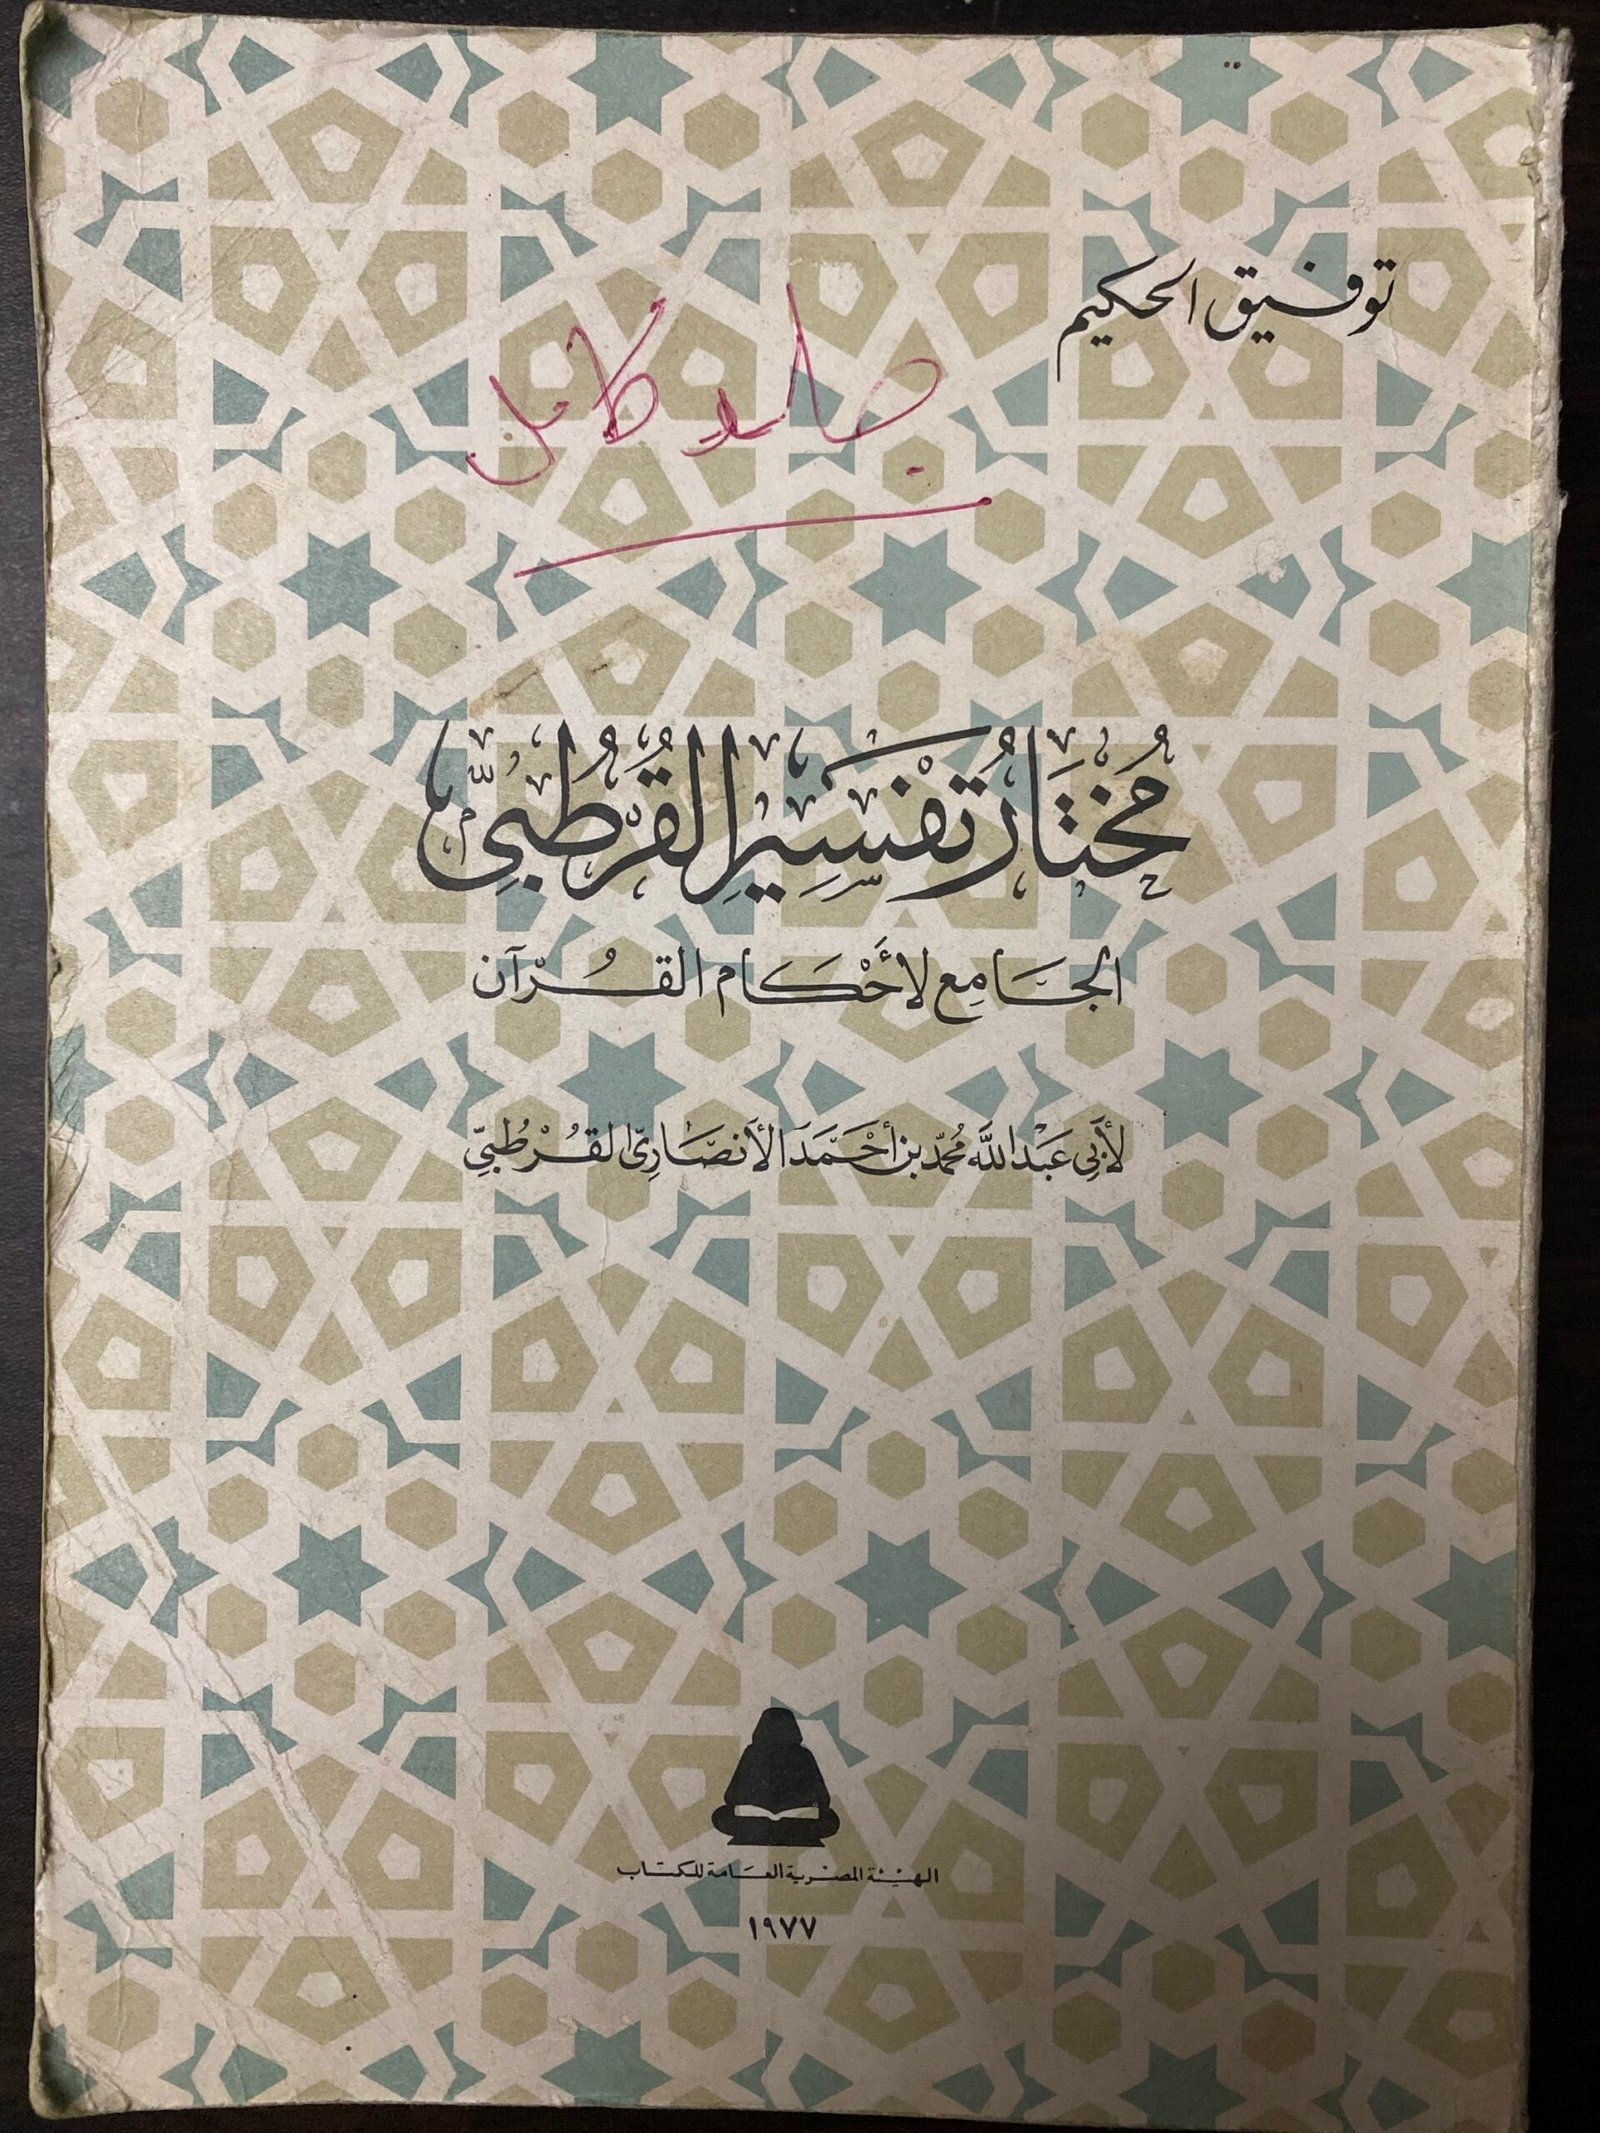 توفيق الحكيم
كامل
مُختَارُ تَفْسِيرِ القُرْطُبِيِّ
الجَامِع لأَحْكَام القُرْآن
لأَبِي عَبْد اللَّه مُحمّد بن أحْمَدَ الأنصَارِيّ القُرْطُبيّ
الهيئة المصرية العامة للكتاب
١٩٧٧